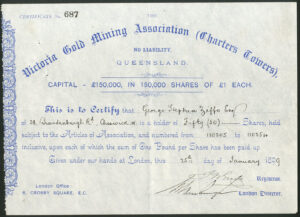 CERTIFICATE No. 687
THE
Victoria Gold Mining Association (Charters Towers),
NO LIABILITY.
QUEENSLAND.
CAPITAL - £150,000, IN 150,000 SHARES OF £1 EACH.
This is to Certify that George Zaffo Esq
of is a holder of Fifty (50) Shares, held
subject to the Articles of Association, and numbered from to
inclusive, upon each of which the sum of One Pound per Share has been paid up
Given under our hands at London this 25th day of January 1889
Registrar.
London Office:
CROSBY SQUARE, E.C.
London Director.